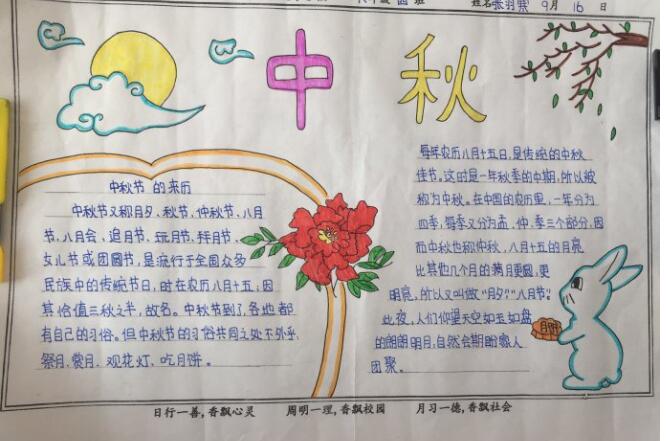 班 姓名 9月16日
中秋
中秋节的来历
中秋节又称月夕、秋节、仲秋节、八月
节、八月会、追月节、玩月节、拜月节、
女儿节或团圆节,是流行于全国众多
民族中的传统节日,时在农历八月十五;因
其恰值三秋之半,故名。中秋节到了,各地都
有自己的习俗。但中秋节的习俗共同之处不外乎,
祭月、赏月、观花灯、吃月饼。
每年农历八月十五日,是传统的中秋
佳节,这时是一年秋季的中期,所以被
称为中秋。在中国的农历里,一年分为
四季,每季又分为孟、仲、季三个部分,因
而中秋也称仲秋,八月十五的月亮
比其他几个月的满月更圆,更
明亮,所以又叫做“月夕”“八月节”
此夜,人们仰望天空如玉如盘
的朗朗明月,自然会期盼家人
团聚。
月饼
日行一善,香飘心灵 周明一理,香飘校园 月习一德,香飘社会